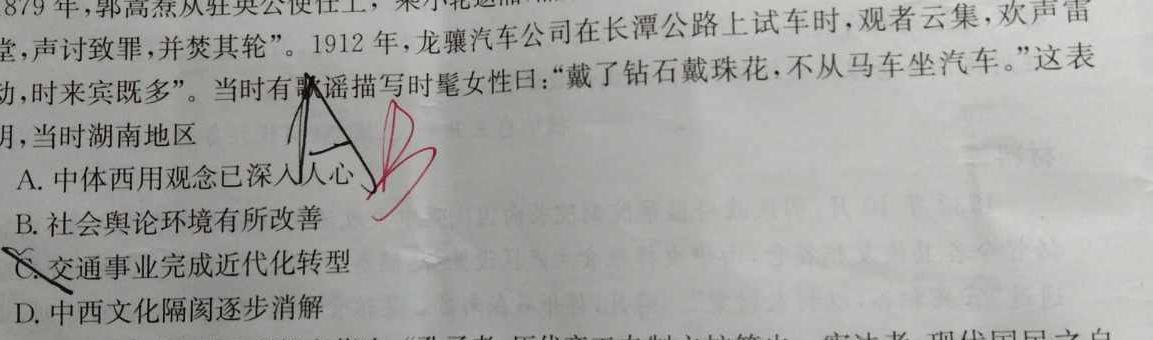 879年,郭嵩焘从驻英公使任上,乘小轮
堂,声讨致罪,并焚其轮”。1912年,龙骧汽车公司在长潭公路上试车时,观者云集,欢声雷
动,时来宾既多”。当时有歌谣描写时髦女性曰:“戴了钻石戴珠花,不从马车坐汽车。”这表
明,当时湖南地区
A
B
A. 中体西用观念已深入人心
B. 社会舆论环境有所改善
C. 交通事业完成近代化转型
D. 中西文化隔阂逐步消解